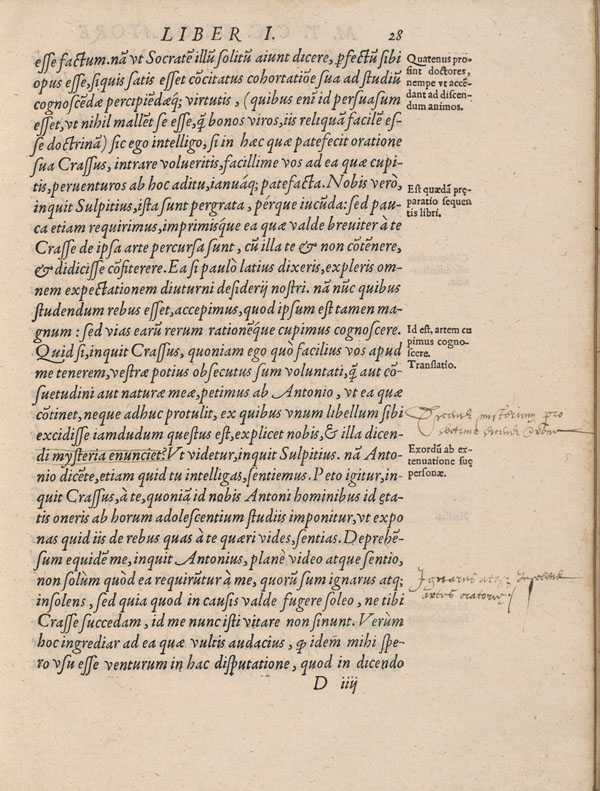 LIBER I. 28
esse factum. nã vt Socratẽ illũ solitũ aiunt dicere, ꝑfectũ sibi
opus esse, siquis satis esset cõcitatus cohortatiõe sua ad studiũ
cognoscẽdæ percipiẽdæq; virtutis, (quibus enĩ id persuasum
esset, vt nihil mallẽt se esse, q̃ bonos viros, iis reliquã facilẽ es-
se doctrinã) sic ego intelligo, si in hæc quæ patefecit oratione
sua Crassus, intrare volueritis, facillime vos ad ea quæ cupi-
tis, peruenturos ab hoc aditu, ianuáq; patefacta. Nobis verò,
inquit Sulpitius, ista sunt pergrata, pérque iucũda: sed pau-
ca etiam requirimus, imprimísque ea quæ valde breuiter à te
Crasse de ipsa arte percursa sunt, cũ illa te & non cõtẽnere,
& didicisse cõfiterere. Ea si paulò latius dixeris, expleris om-
nem expectationem diuturni desiderij nostri. nã nũc quibus
studendum rebus esset, accepimus, quod ipsum est tamen ma-
gnum: sed vias earũ rerum rationẽque cupimus cognoscere.
Quid si, inquit Crassus, quoniam ego quò facilius vos apud
me tenerem, vestræ potius obsecutus sum voluntati, q̃ aut cõ-
suetudini aut naturæ meæ, petimus ab Antonio, vt ea quæ
cõtinet, neque adhuc protulit, ex quibus vnum libellum sibi
excidisse iamdudum questus est, explicet nobis, & illa dicen-
di mysteria enunciet? Vt videtur, inquit Sulpitius. nã Anto-
nio dicẽte, etiam quid tu intelligas, sentiemus. Peto igitur, in-
quit Crassus, à te, quoniã id nobis Antoni hominibus id ęta-
tis oneris ab horum adolescentium studiis imponitur, vt expo
nas quid iis de rebus quas à te quæri vides, sentias. Deprehẽ-
sum equidẽ me, inquit Antonius, planè video atque sentio,
non solùm quòd ea requirũtur à me, quorũ sum ignarus atq;
insolens, sed quia quod in causis valde fugere soleo, ne tibi
Crasse succedam, id me nunc isti vitare non sinunt. Verùm
hoc ingrediar ad ea quæ vultis audacius, ꝙ idem mihi spe-
ro vsu esse venturum in hac disputatione, quod in dicendo
D iiij
Quatenus pro-
sint doctores,
nempe vt accẽ-
dant ad discen-
dum animos.
Est quædã prę-
paratio sequen
tis libri.
Id est, artem cu
pimus cogno-
scere.
Translatio.
Exordiũ ab ex-
tenuatione suę
personæ.
Ignarus atq; Insolens
artis oratoriæ